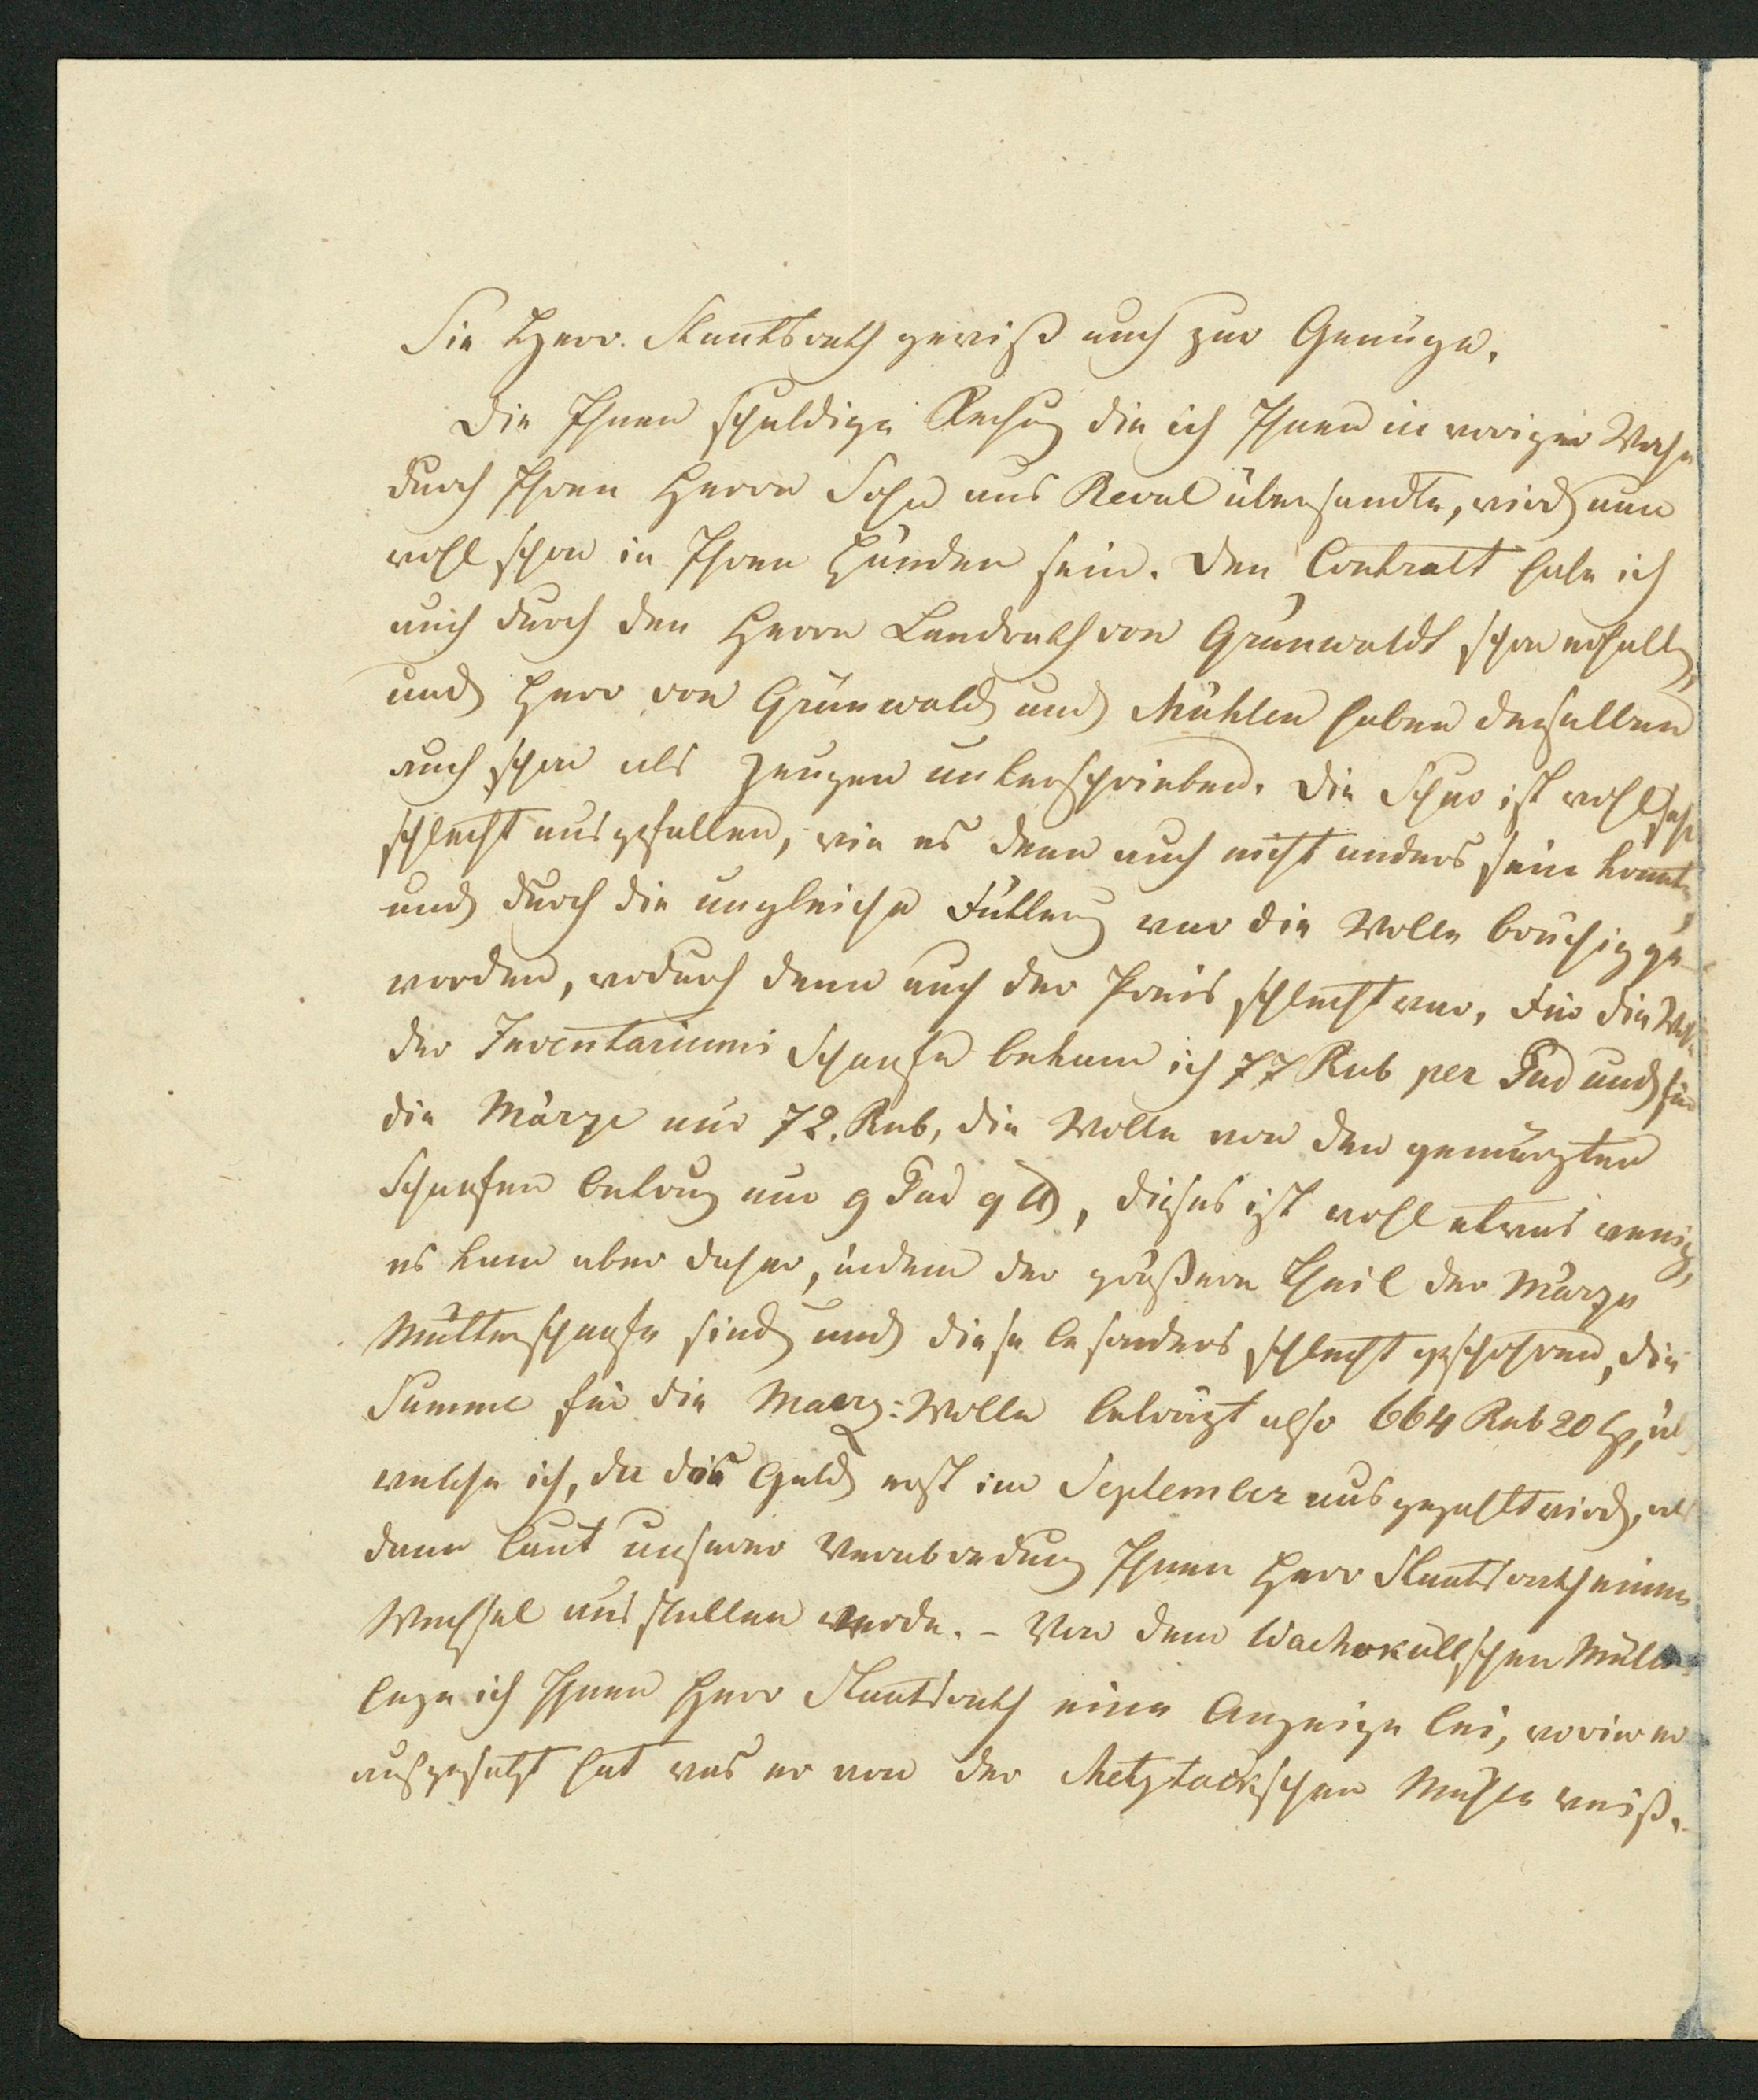 Sie Herr Staatsrath gewiß auch zur Genüge.
Die Ihnen schuldige Rechung die ich Ihnen in voriger Woche
durch Ihren Herrn Sohn aus Reval übersandte, wird nun
wohl schon in Ihren Händen sein. Den Contrakt habe ich
auch durch den Herrn Landrath von Grünwaldt schon erhalten,
und Herr von Grünwald und Mühlen haben denselben
auch schon als Zeugen unterschrieben. Die Schur ist wohl sehr
schlecht ausgefallen, wie es denn auch nicht anders sein konnte,
und durch die ungleiche Fütterung war die Wolle brüchig ge-
worden, wodurch denn auch der Preis schlecht war. Für die Wolle
der Inventariums Schaafe bekam ich 77 Rub per Pud und für
die Märze nur 72. Rub, die Wolle von den gemärzten
Schaafen betrug nur 9 Pud 9 ℔, dieses ist wohl etwas wenig,
es kam aber daher, indem der größere Theil der Märze
Mutterschaafe sind und diese besonders schlecht geschoren, die
Summe für die Maerz-Wolle beträgt also 664 Rub 20 Cp, üb
welche ich, da das Geld erst im September ausgezahlt wird, als
dann laut unserer Verabredung Ihnen Herr Staatsrath einen
Wechsel ausstellen werde. - Von dem Wachoküllschen Müller
lege ich Ihnen Herr Staatsrath eine Anzeige bei, worin er
aufgesetzt hat was er von der Metztackschen Mühle weiß.